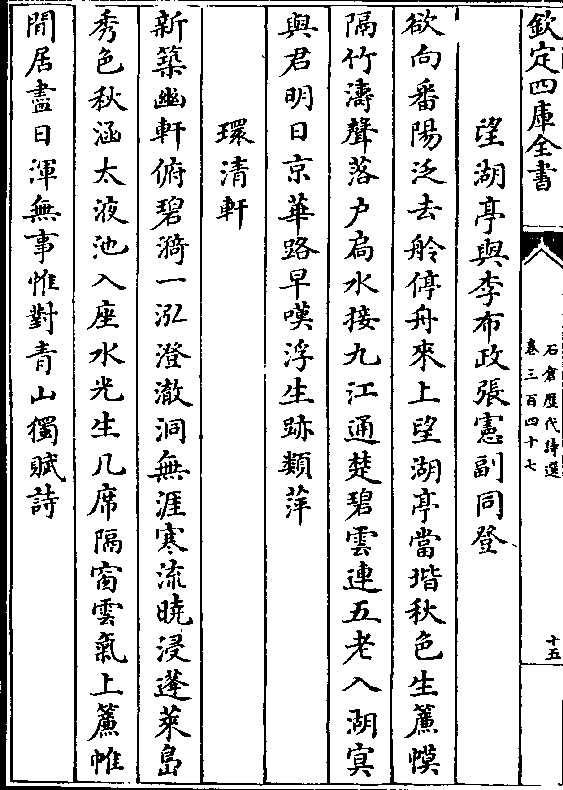 欽定四庫全書
石倉歷代詩選
卷三百四十七
十五
望湖亭與李布政張憲副同登
欲向番陽泛去舲停舟來上望湖亭當堦秋色生簾幙
隔竹濤聲落户扃水接九江通楚碧雲連五老入湖㝠
與君明日京華路早嘆浮生跡類萍
環清軒
新築幽軒俯碧漪一泓澄澈洞無涯寒流曉浸蓬萊島
秀色秋涵太液池入座水光生几席隔窗雲氣上簾帷
閒居盡日渾無事惟對青山獨賦詩